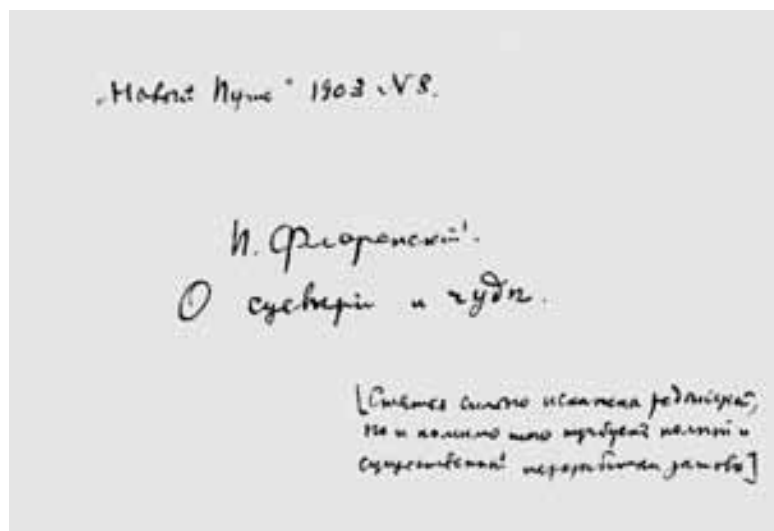 „Новый Путь" 1903 № 8.
П. Флоренскій.
О суевѣріи и чудѣ.
[Статья сильно искажена редакціей,
но и помимо того требуетъ полной и
существенной переработки заново]